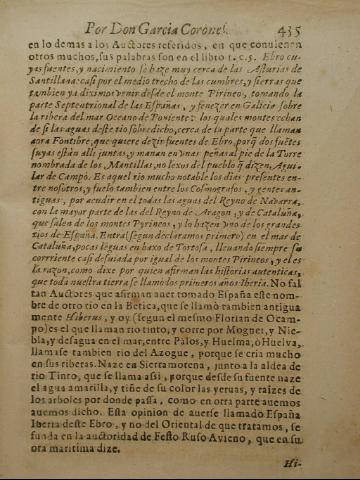 Por Don Garcia Coronel. 435
en lo demas a los Auctores referidos, en que conuienen
otros muchos, sus palabras son en el libro 1. c. 5. Ebro cu-
yas fuentes, y nacimiento se haze muy cerca de las Asturias de
Santillana: casi por el medio trecho de las cumbres, y sierras que
tambien ya diximos venir desde el monte Pirineo, tomando la
parte Septentrional de las Españas, y fenezer en Galicia sobre
la ribera del mar Oceano de Poniente: los quales montes echan
de si las aguas deste rio sobredicho, cerca de la parte que llaman
aora Fontibre, que quiere dezir fuentes de Ebro, porq̃ dos fuẽtes
suyas están alli juntas, y manan en vnas peñas al pie de la Torre
nombrada de los Mantillas, no lexos del pueblo q̃ dizen, Agui-
lar de Campò. Es aquel rio mucho notable los dias presentes en-
tre nosotros, y fuelo tambien entre los Cosmografos, y gentes an-
tiguas, por acudir en el todas las aguas del Reyno de Nabarra,
con la mayor parte de las del Reyno de Aragon, y de Cataluña,
que salen de los montes Pyrineos, y lo hazen vno de los grandes
rios de España. Entra (segun declaramos primero) en el mar de
Cataluña, pocas leguas en baxo de Tortosa, lleuando siempre su
corriente casi desuiada por igual de los montes Pirineos, y el es
la razon, como dixe por quien afirman las historias autenticas,
que toda nuestra tierra se llamò los primeros anos Iberia. No fal
tan Auctores que afirman auer tomado España este nom-
bre de otro rio en la Betica, que se llamò tambien antigua
mente Hiberus, y oy (segun el mesmo Florian de Ocam-
po) es el que llaman rio tinto, y corre por Moguer, y Nie-
bla, y desagua en el mar, entre Palos, y Huelma, ò Huelva,
llamase tambien rio del Azogue, porque se cria mucho
en sus riberas. Naze en Sierramorena, junto a la aldea de
rio Tinto, que se llama assi, porque desde su fuente naze
el agua amarilla, y tiñe de su color las yeruas, y raizes de
los arboles por donde passa, como en otra parte auemos
auemos dicho. Esta opinion de auerse llamado España
Iberia deste Ebro, y no del Oriental de que tratamos, se
funda en la auctoridad de Festo Ruso Avieno, que en su
ora maritima dize.
Hi-